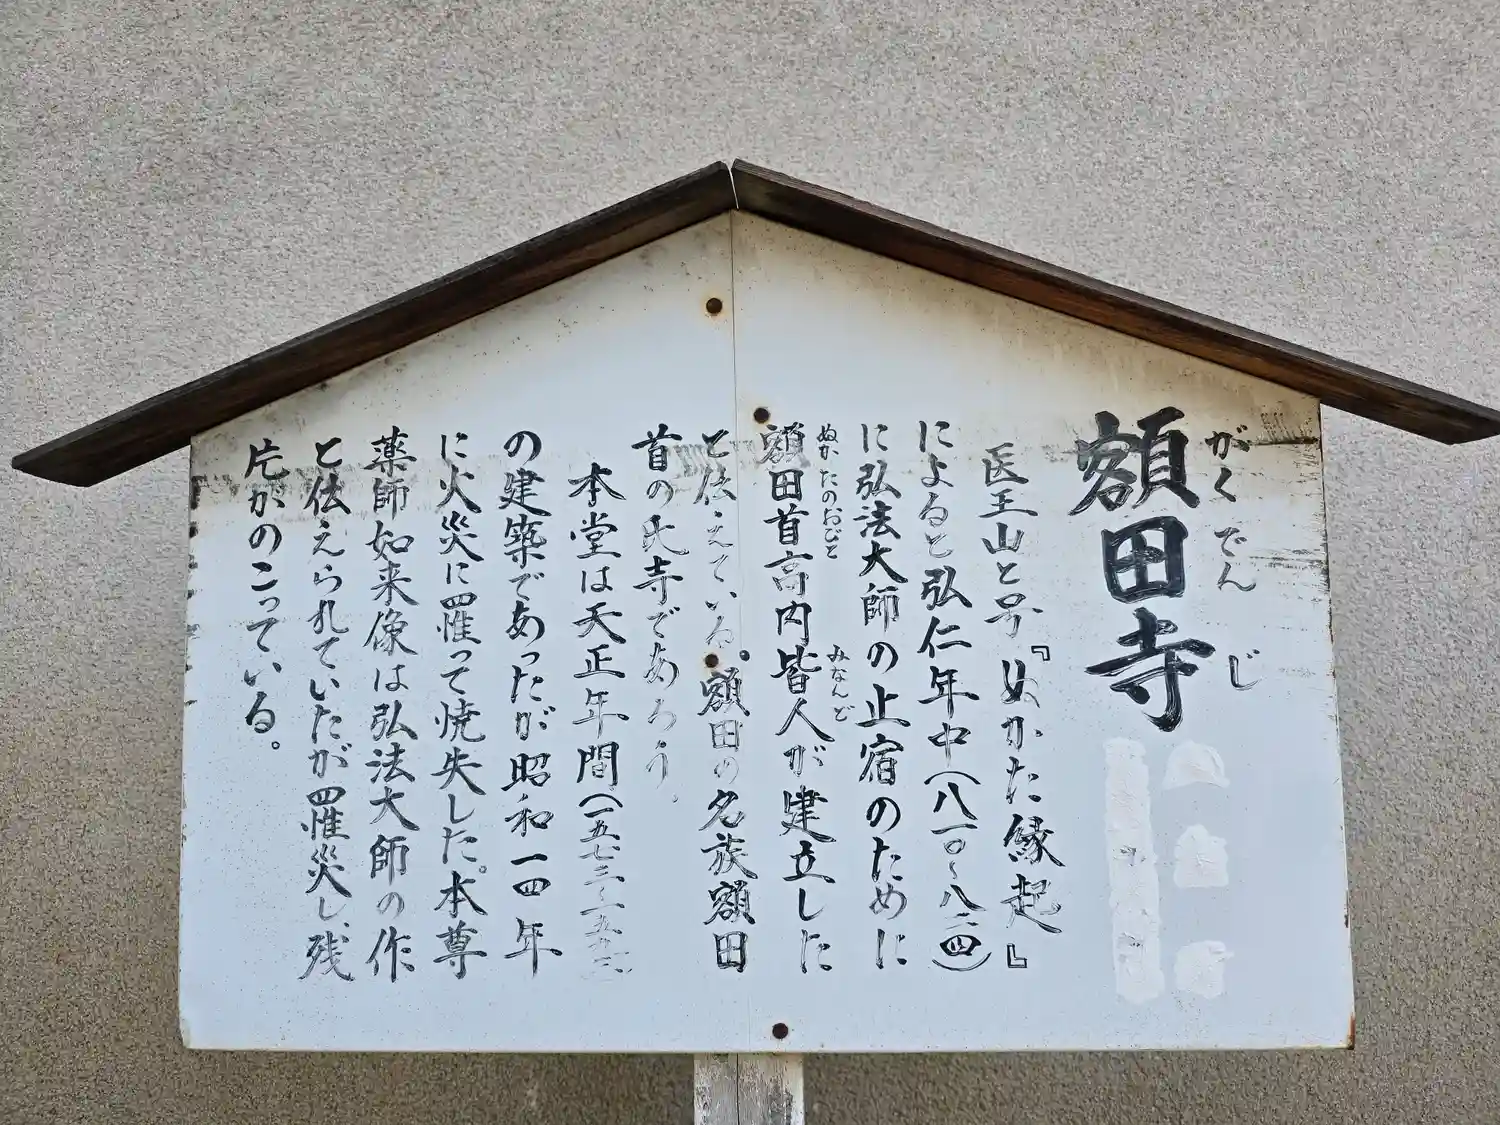 がくでんじ
額田寺
医王山と号『ぬかた縁起』
によると弘仁年中(八一〇〜八二四)
に弘法大師の止宿のために
ぬかたのおびと みなんど
額田首高内皆人が建立した
と伝えている。額田の名族額田
首の氏寺であろう。
本堂は天正年間(一五七三〜一五九二)
の建築であったが昭和一四年
に火災に罹って焼失した。本尊
薬師如来像は弘法大師の作
と伝えられていたが罹災し、残
片がのこっている。